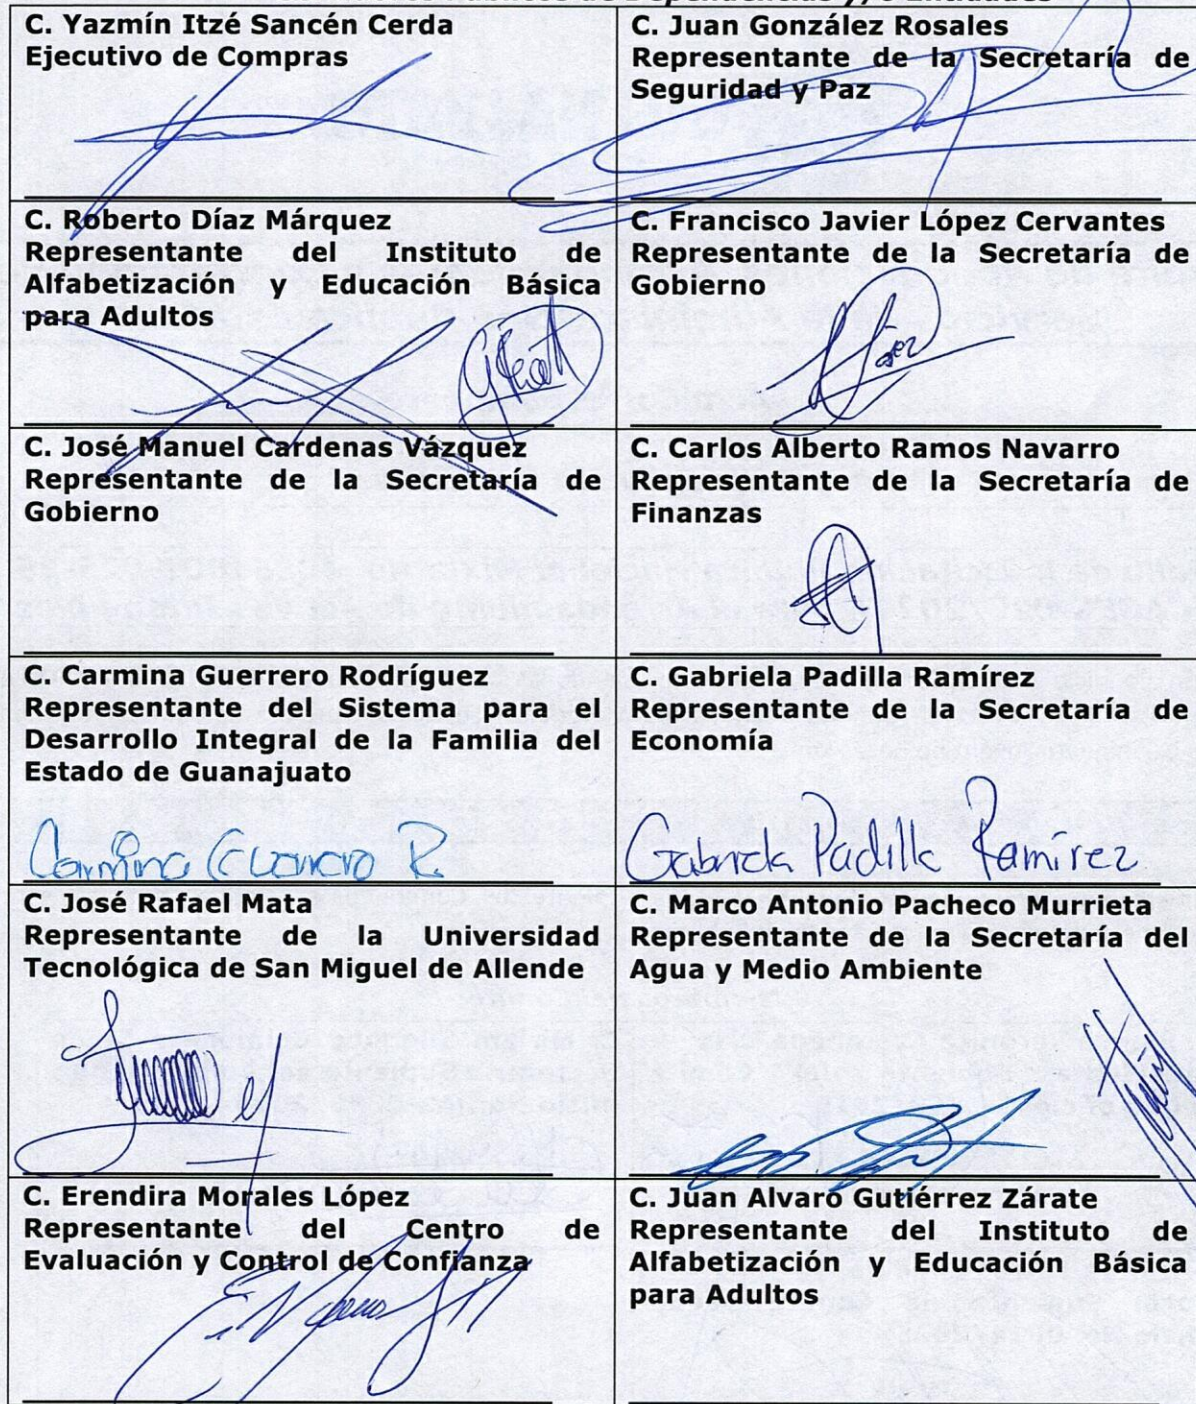 Dependencias y/o Entidades
C. Yazmín Itzé Sancén Cerda
Ejecutivo de Compras
C. Juan González Rosales
Representante de la Secretaría de
Seguridad y Paz
C. Roberto Díaz Márquez
Representante del Instituto de
Alfabetización y Educación Básica
para Adultos
C. Francisco Javier López Cervantes
Representante de la Secretaría de
Gobierno
C. José Manuel Cardenas Vázquez
Representante de la Secretaría de
Gobierno
C. Carlos Alberto Ramos Navarro
Representante de la Secretaría de
Finanzas
C. Carmina Guerrero Rodríguez
Representante del Sistema para el
Desarrollo Integral de la Familia del
Estado de Guanajuato
Carmina Guerrero R.
C. Gabriela Padilla Ramírez
Representante de la Secretaría de
Economía
Gabriela Padilla Ramírez
C. José Rafael Mata
Representante de la Universidad
Tecnológica de San Miguel de Allende
C. Marco Antonio Pacheco Murrieta
Representante de la Secretaría del
Agua y Medio Ambiente
C. Erendira Morales López
Representante del Centro de
Evaluación y Control de Confianza
C. Juan Alvaro Gutiérrez Zárate
Representante del Instituto de
Alfabetización y Educación Básica
para Adultos